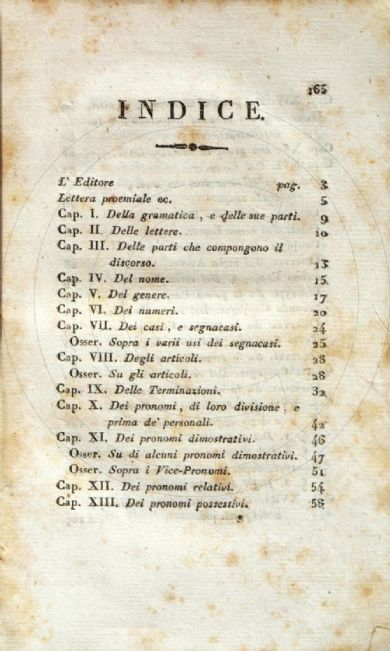 165
INDICE.
L' Editore pag. 3
Lettera proemiale ec. 5
Cap. I. Della gramatica, e delle sue parti. 9
Cap. II. Delle lettere. 10
Cap. III. Delle parti che compongono il
discorso. 13
Cap. IV. Del nome. 15
Cap. V. Del genere. 17
Cap. VI. Dei numeri. 20
Cap. VII. Dei casi, e segnacasi. 24
Osser. Sopra i varii usi dei segnacasi. 25
Cap. VIII. Degli articoli. 28
Osser. Su gli articoli. 28
Cap. IX. Delle Terminazioni. 32
Cap. X. Dei pronomi, di loro divisione, e
prima de' personali. 42
Cap. XI. Dei pronomi dimostrativi. 46
Osser. Su di alcuni pronomi dimostrativi. 47
Osser. Sopra i Vice-Pronomi. 51
Cap. XII. Dei pronomi relativi. 54
Cap. XIII. Dei pronomi possessivi. 58